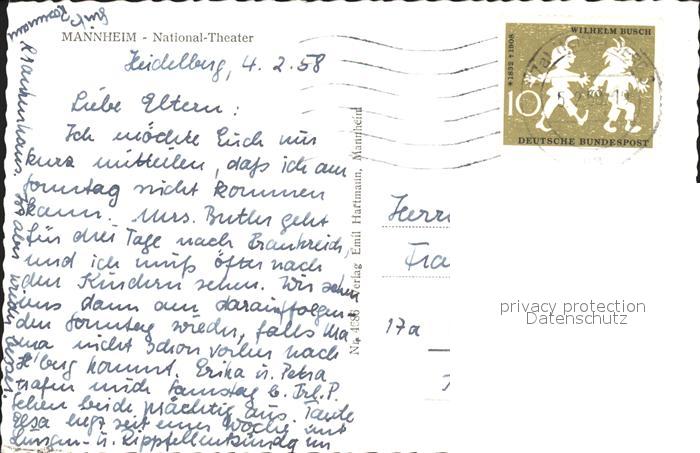 MANNHEIM - National-Theater
Heidelberg, 4. 2. 58
Liebe Eltern :
Ich möchte Euch nur
kurz mitteilen, daß ich am
Sonntag nicht kommen
kann. Mrs. Butler geht
für drei Tage nach Frankreich,
und ich muß öfter nach
den Kindern sehen. Wir sehen
uns dann am darauffolgen-
den Sonntag wieder, falls Ma
ma nicht schon vorher nach
H'berg kommt. Erika u. Petra
trafen mich Samstag b. Frl. P.
Sehen beide prächtig aus. Tante
Elsa liegt seit einer Woche mit
Lungen- u. Rippfellentzündung im
Krankenhaus, ist aber wieder besser.
Verlag Emil Hartmann, Mannheim
WILHELM BUSCH
*1832 †1908
10
DEUTSCHE BUNDESPOST
Herrn
Fra
17a
privacy protection
Datenschutz